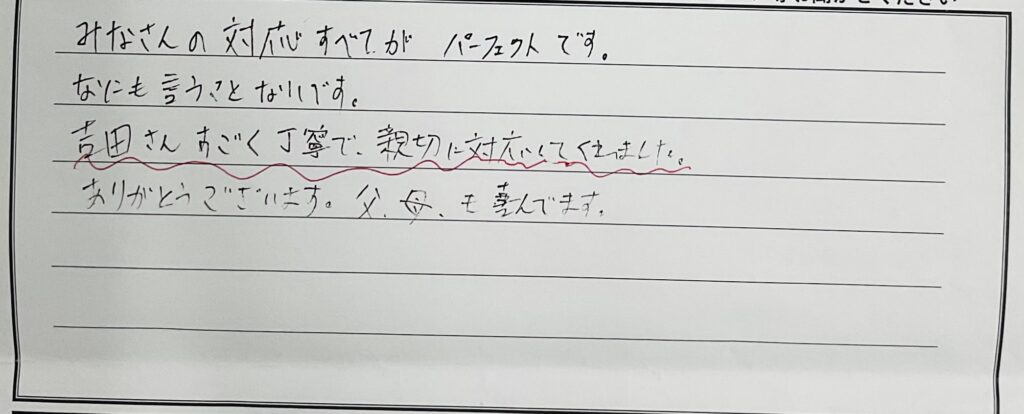 みなさんの対応すべてが パーフェクトです。
なにも言うことないです。
吉田さんすごく丁寧で、親切に対応してくれました。
ありがとうございます。父、母、も喜んでます。